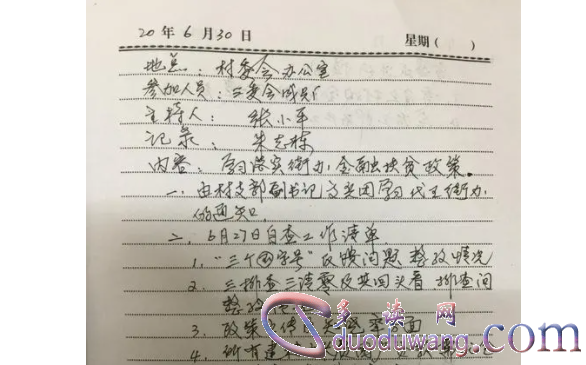 20 年 6 月 30 日 星期( )
地点：村委会办公室
参加人员：三委会成员
主持人：张小平
记录：朱志栋
内容：学习落实街办金融扶贫政策。
一、由村支部副书记 共同学习代王街办
的通知
二、6月27日自查工作清单
1. "三个 字号"反馈问题整改情况
2. 三排查三清零及其回头看排查问
整改
3. 政策 传
4. 所有建
多读网
www.duoduwang.com